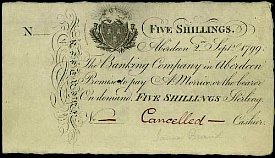 N
FIVE SHILLINGS.
Aberdeen 2d Septr. 1799.
The Banking Company in Aberdeen
Promise to pay A. Morrice, or the bearer
On demand, FIVE SHILLINGS Sterling.
No Cancelled Cashier.